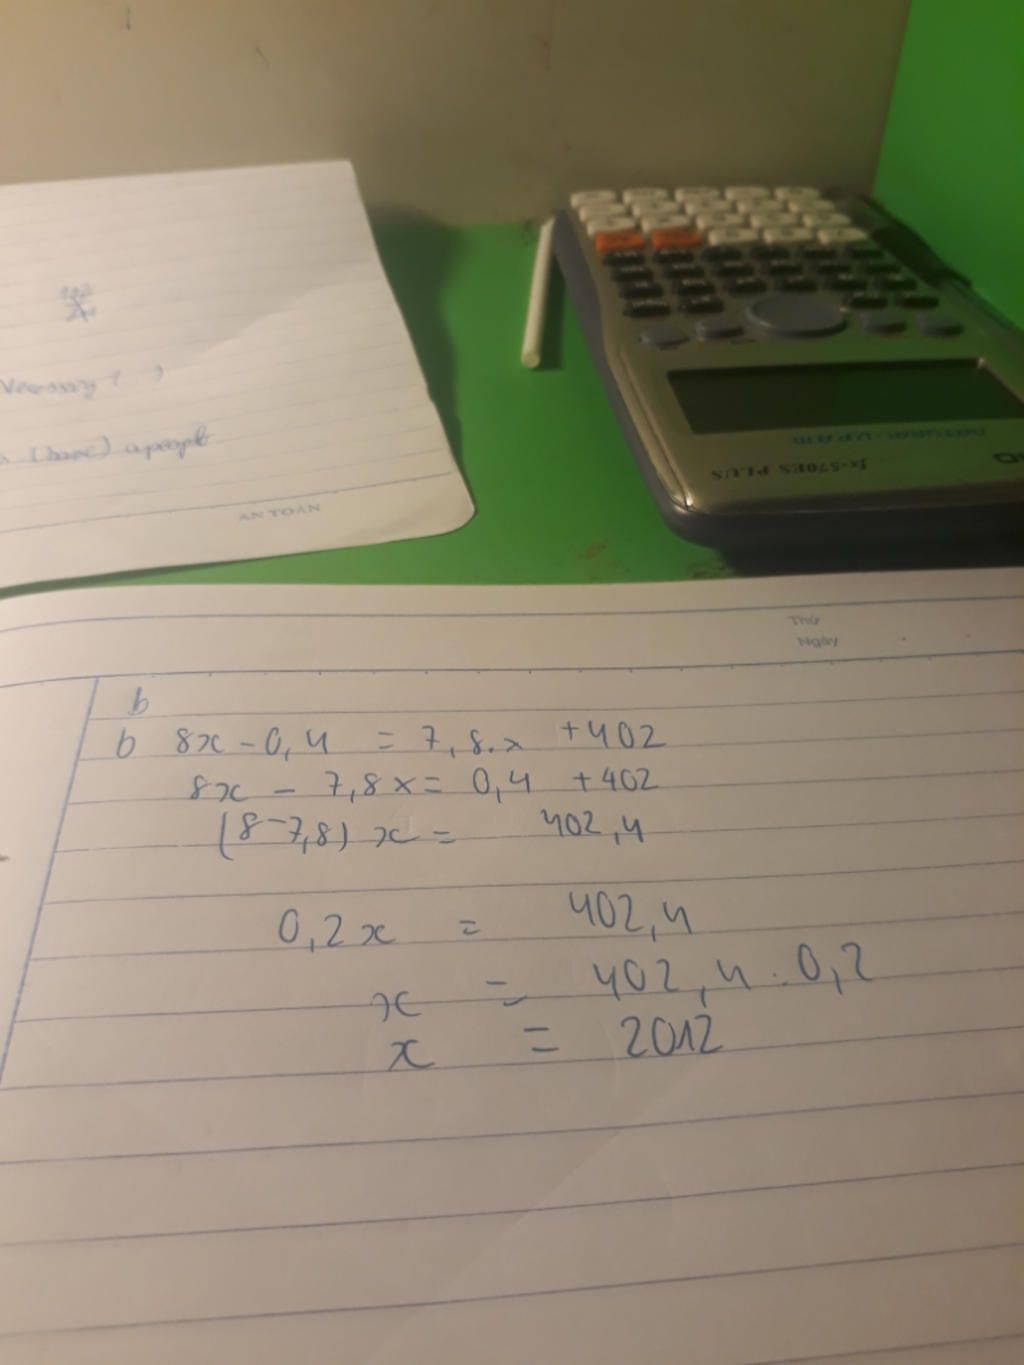 AN TOÀN
fx-570ES PLUS
NATURAL-V.P.A.M.
Thứ
Ngày
b
b 8x - 0,4 = 7,8.x + 402
8x - 7,8x = 0,4 + 402
(8-7,8) x = 402,4
0,2x = 402,4
x = 402,4 : 0,2
x = 2012